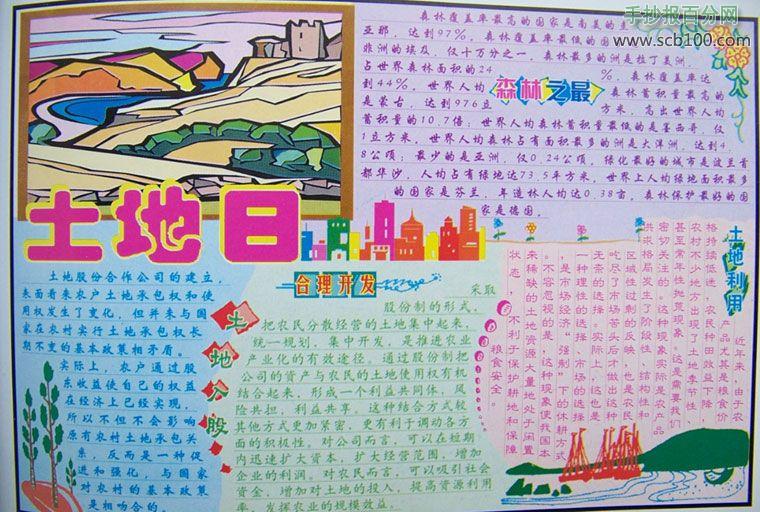 手抄报百分网
www.scb100.com
森林覆盖率最高的国家是南美的圭
亚那，达到97%。森林覆盖率最低的国
非洲的埃及，仅十万分之一，森林最多的洲是拉丁美洲，
占世界森林面积的24%，森林覆盖率达
到44%，世界人均森林蓄积量最高的
是蒙古，达到976立方米，高出世界人均
蓄积量的10.7倍；世界人均森林蓄积量最低的是墨西哥，仅
1立方米。世界人均森林占有面积最多的洲是大洋洲，达到4.
8公顷；最少的是亚洲，仅0.24公顷，绿化最好的城市是波兰首
都华沙，人均占有绿地达73.5平方米，世界上人均绿地面积最多
的国家是芬兰，年造林人均达0.38亩，森林保护最好的国
家是德国。
森林之最
土地日
合理开发
土地股份合作公司的建立，
表面看来农户土地承包权和使
用权发生了变化，但并未与国
家在农村实行土地承包权长
期不变的基本政策相矛盾。
实际上，农户通过股
东收益使自己的权益
在经济上已经实现，
所以不但不会影响
原有农村土地承包关
系，反而是一种促
进和强化，与国家
对农村的基本政策
是相吻合的。
土地入股
采取
股份制的形式，
把农民分散经营的土地集中起来，
统一规划，集中开发，是推进农业
产业化的有效途径。通过股份制把
公司的资产与农民的土地使用权有机
结合起来，形成一个利益共同体，风
险共担，利益共享。这种结合方式较
其他方式更加紧密，更有利于调动各方
面的积极性。对公司而言，可以在短期
内迅速扩大资本，扩大经营范围，增加
企业的利润，对农民而言，可以吸引社会
资金，增加对土地的投入，提高资源利用
率，发挥农业的规模效益。
土地利用
近年来，由于农
产品尤其是粮食价
格持续低迷，农民种田效益下降，
农村不少地方出现了土地季节性，
甚至常年性抛荒现象。这是需要我们
密切关注的。这种现象实际是农产品
供求格局发生了阶段性、结构性和
区域性过剩的反映，也是农民
吃尽了市场苦头后才做出这种
无奈的选择。实际上，这也是
一种理性的选择，市场的选择，
是市场经济“强制”下的休耕方式。
不容忽视的是，这种现象使我国本
来稀缺的土地资源大量地处于闲置
状态，不利于保护耕地和保障
粮食安全。